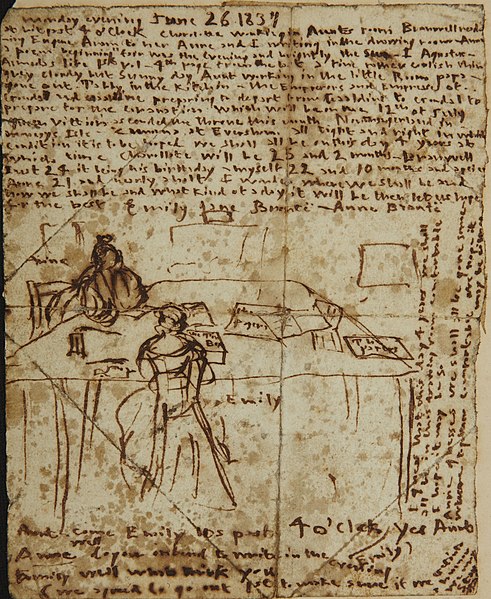 Monday evening June 26 1837
A bit past 4 o'Clock Charlotte working in Aunts room Branwell reading
Eugene Aram to her Anne and I writing in the drawing room Anne
a poem beginning fair was the evening and brightly the sun I Agustus
Almedas life 1st vol 4th page from the last a fine rather coolish thin
grey cloudy but Sunny day Aunt working in the little Room papa
gone out Tabby in the Kitchen - the Emperors and Empresses of
Gondal and Gaaldine preparing to depart from Gaaldine to Gondal to
prepare for the coranation which will be on the 12th of July
Queen Vittoria ascended the Throne this month Northangerland in
Monceys Isle - Zamorna at Eversham all tight and right in which
condition it is to be hoped we shall all be on this day 4 years at
which time Charlotte will be 25 and 2 months - Branwell
just 24 it being his birthday - myself 22 and 10 months and a peice
Anne 21 and nearly a half I wonder where we shall be and
how we shall be and what kind of a day it will be then let us hope
for the best Emily Jane Brontë - Anne Brontë
Anne
The
papers
Emily
I guess that this day 4 years we shall
all be in this drawing room comfortable
I hope it may be so
Anne guesses we shall all be gone somewhere
comfortable
Aunt come Emily its past 4 o'clock yes Aunt
Anne well do you intend to write in the evening
Emily well what think you
(we agreed to go out 1st to make sure if we